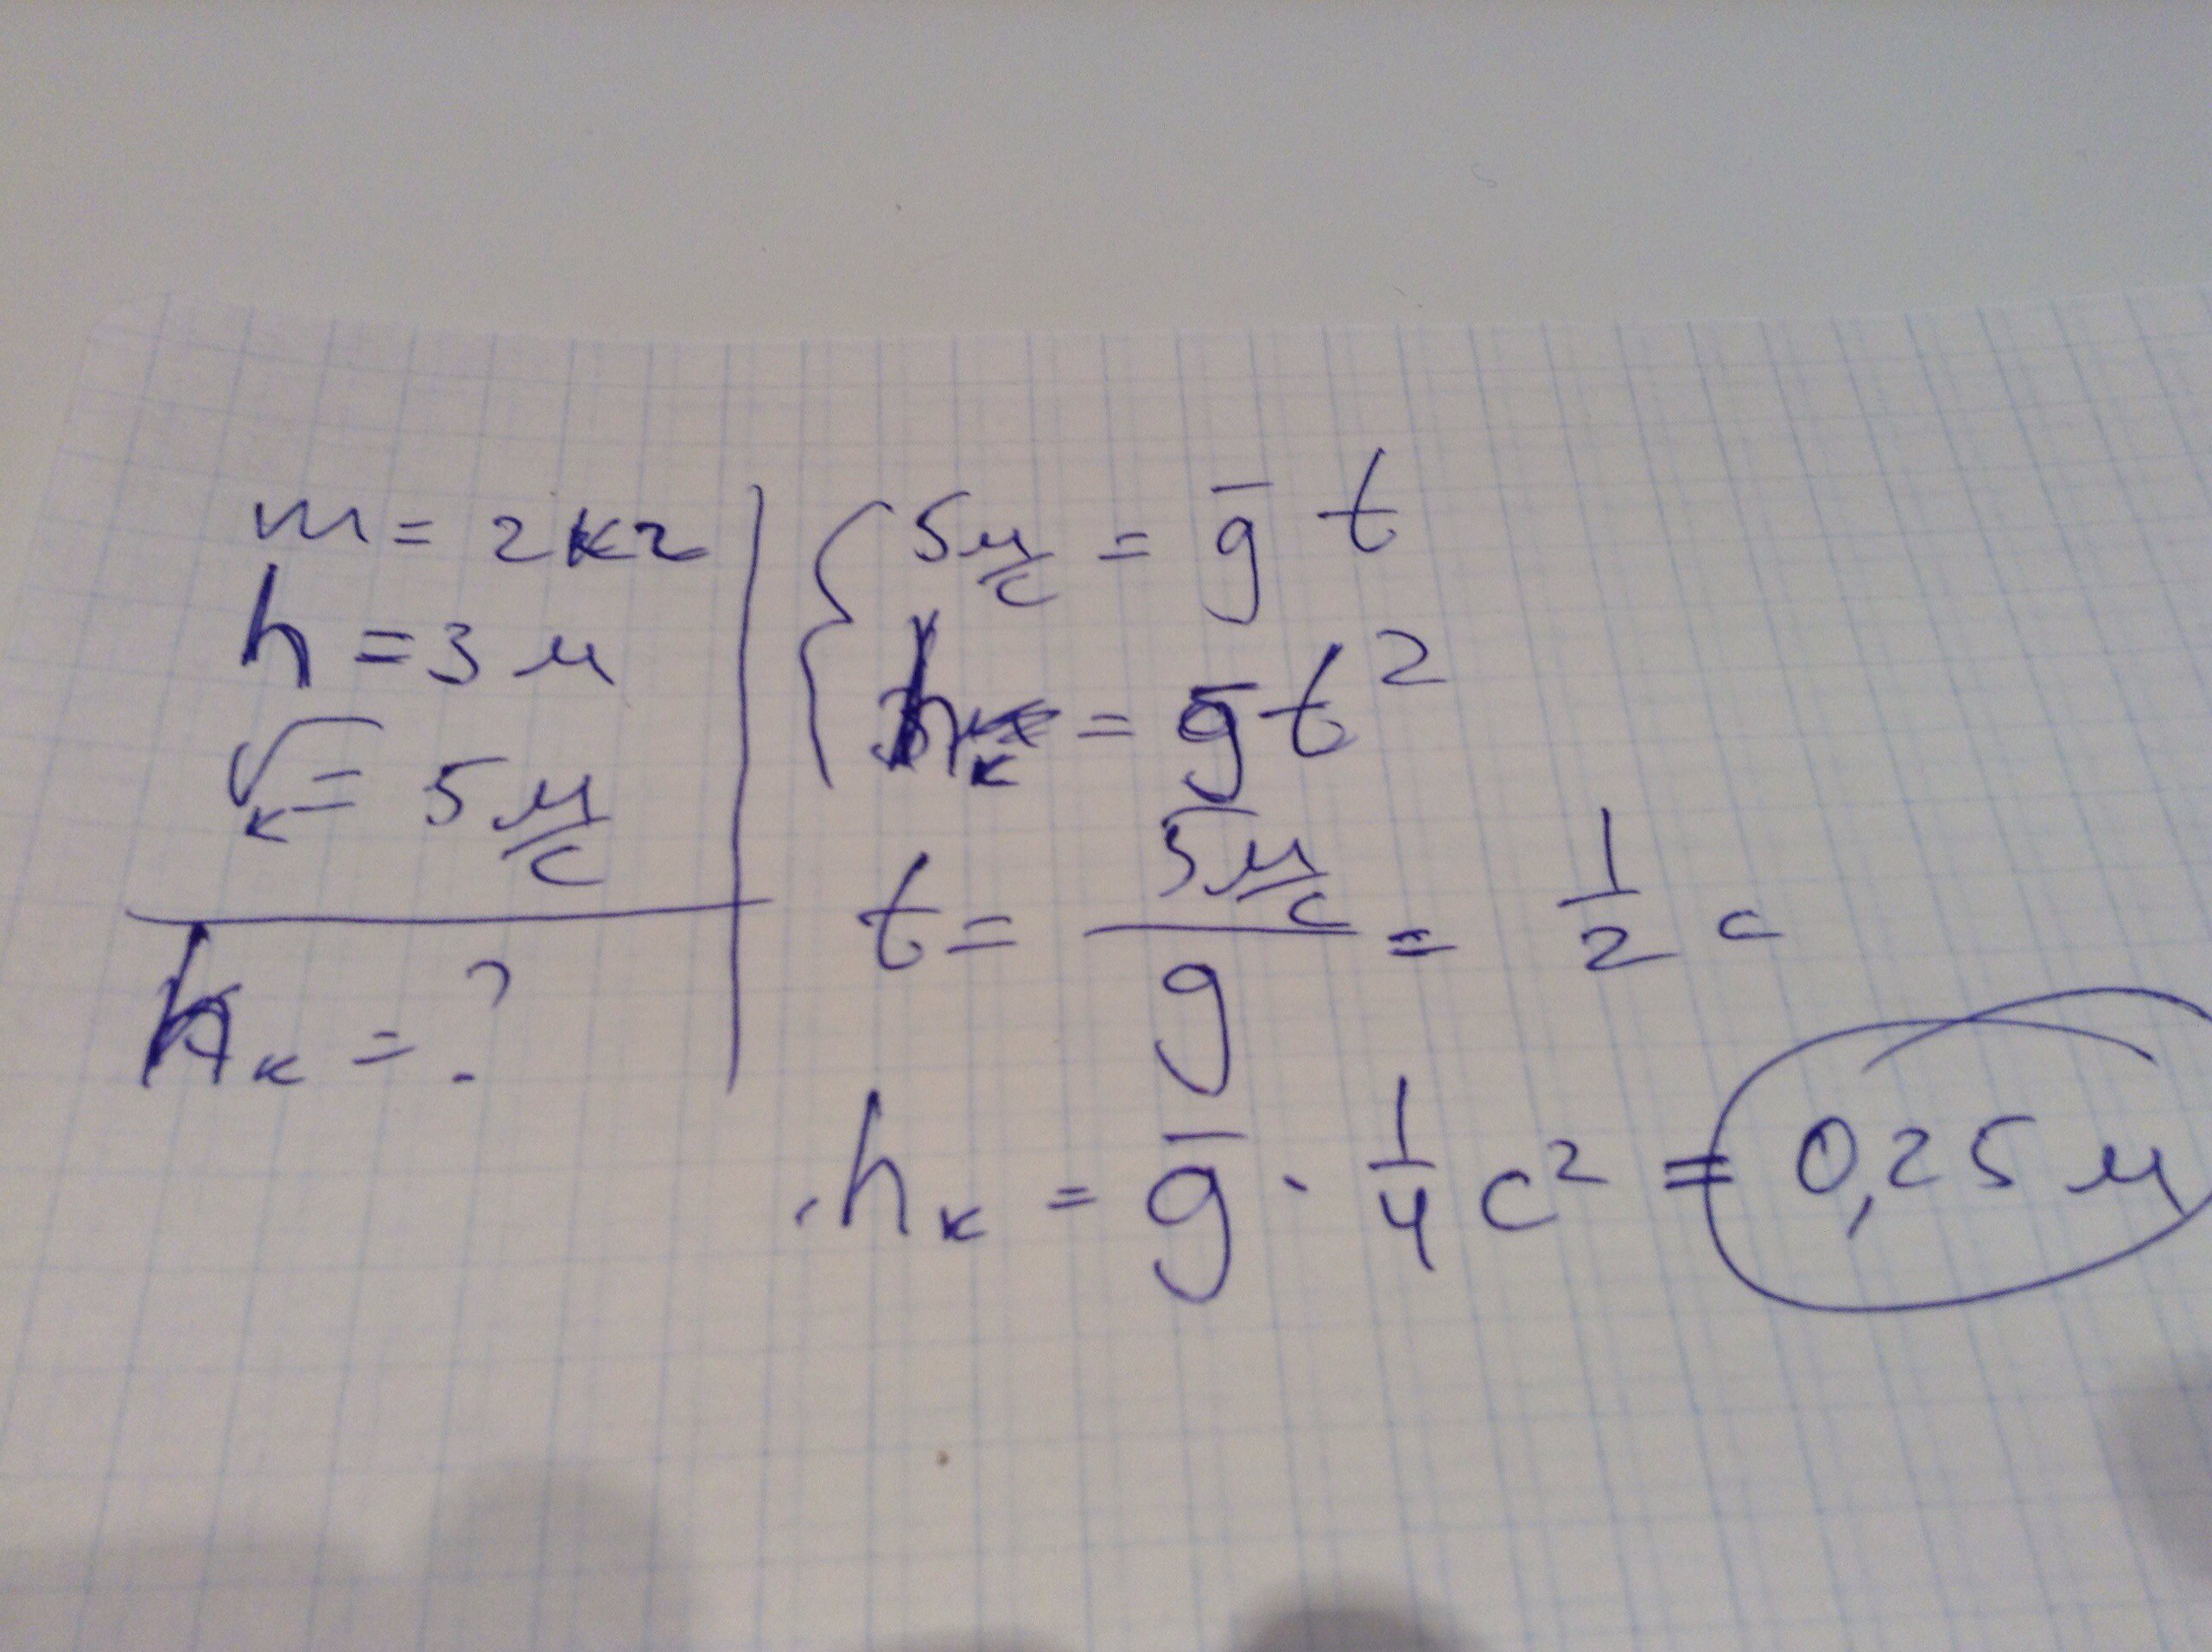 m = 2кг
h = 3 м
V к = 5 м/с
hк = ?
5 м/с = g̅ t
hк = g̅ t²
t = 5 м/с / g = 1/2 с
hк = g̅ · 1/4 с² = 0,25 м